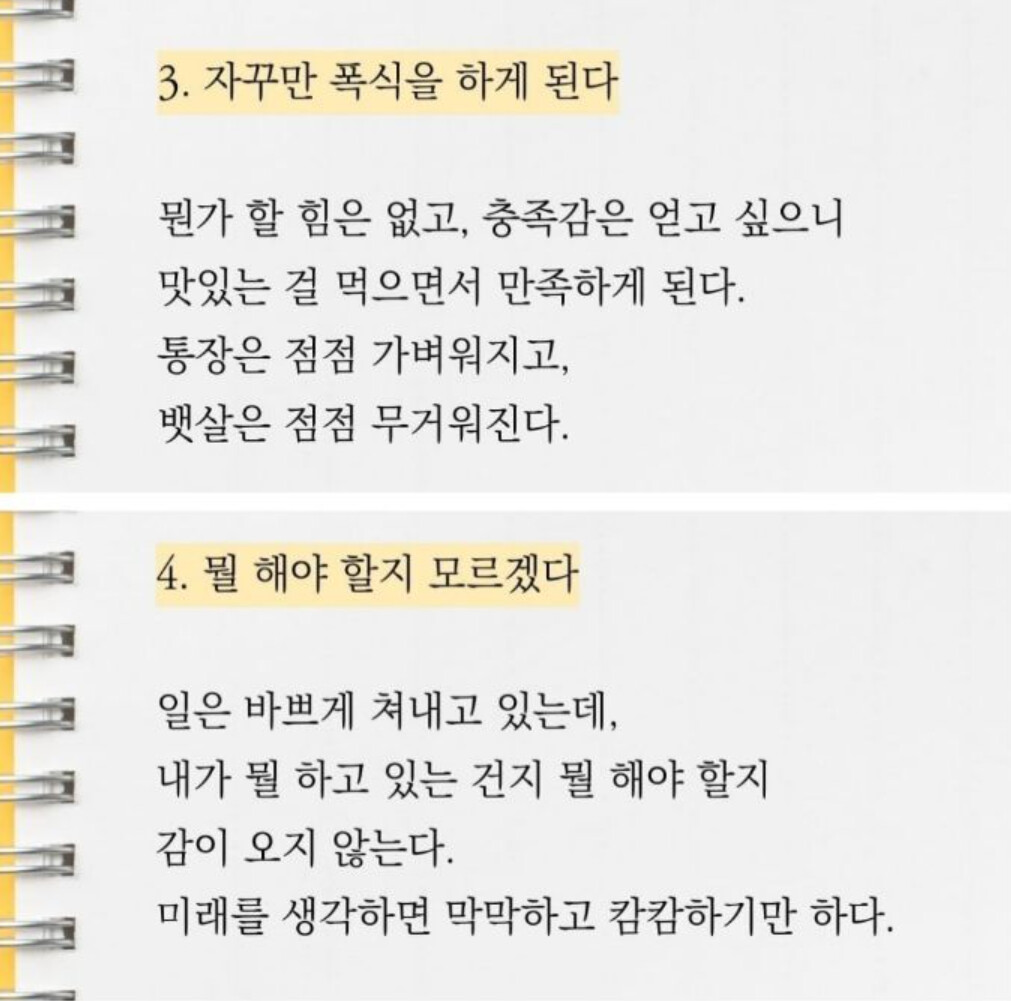 3. 자꾸만 폭식을 하게 된다
뭔가 할 힘은 없고, 충족감은 얻고 싶으니
맛있는 걸 먹으면서 만족하게 된다.
통장은 점점 가벼워지고,
뱃살은 점점 무거워진다.
4. 뭘 해야 할지 모르겠다
일은 바쁘게 쳐내고 있는데,
내가 뭘 하고 있는 건지 뭘 해야 할지
감이 오지 않는다.
미래를 생각하면 막막하고 캄캄하기만 하다.